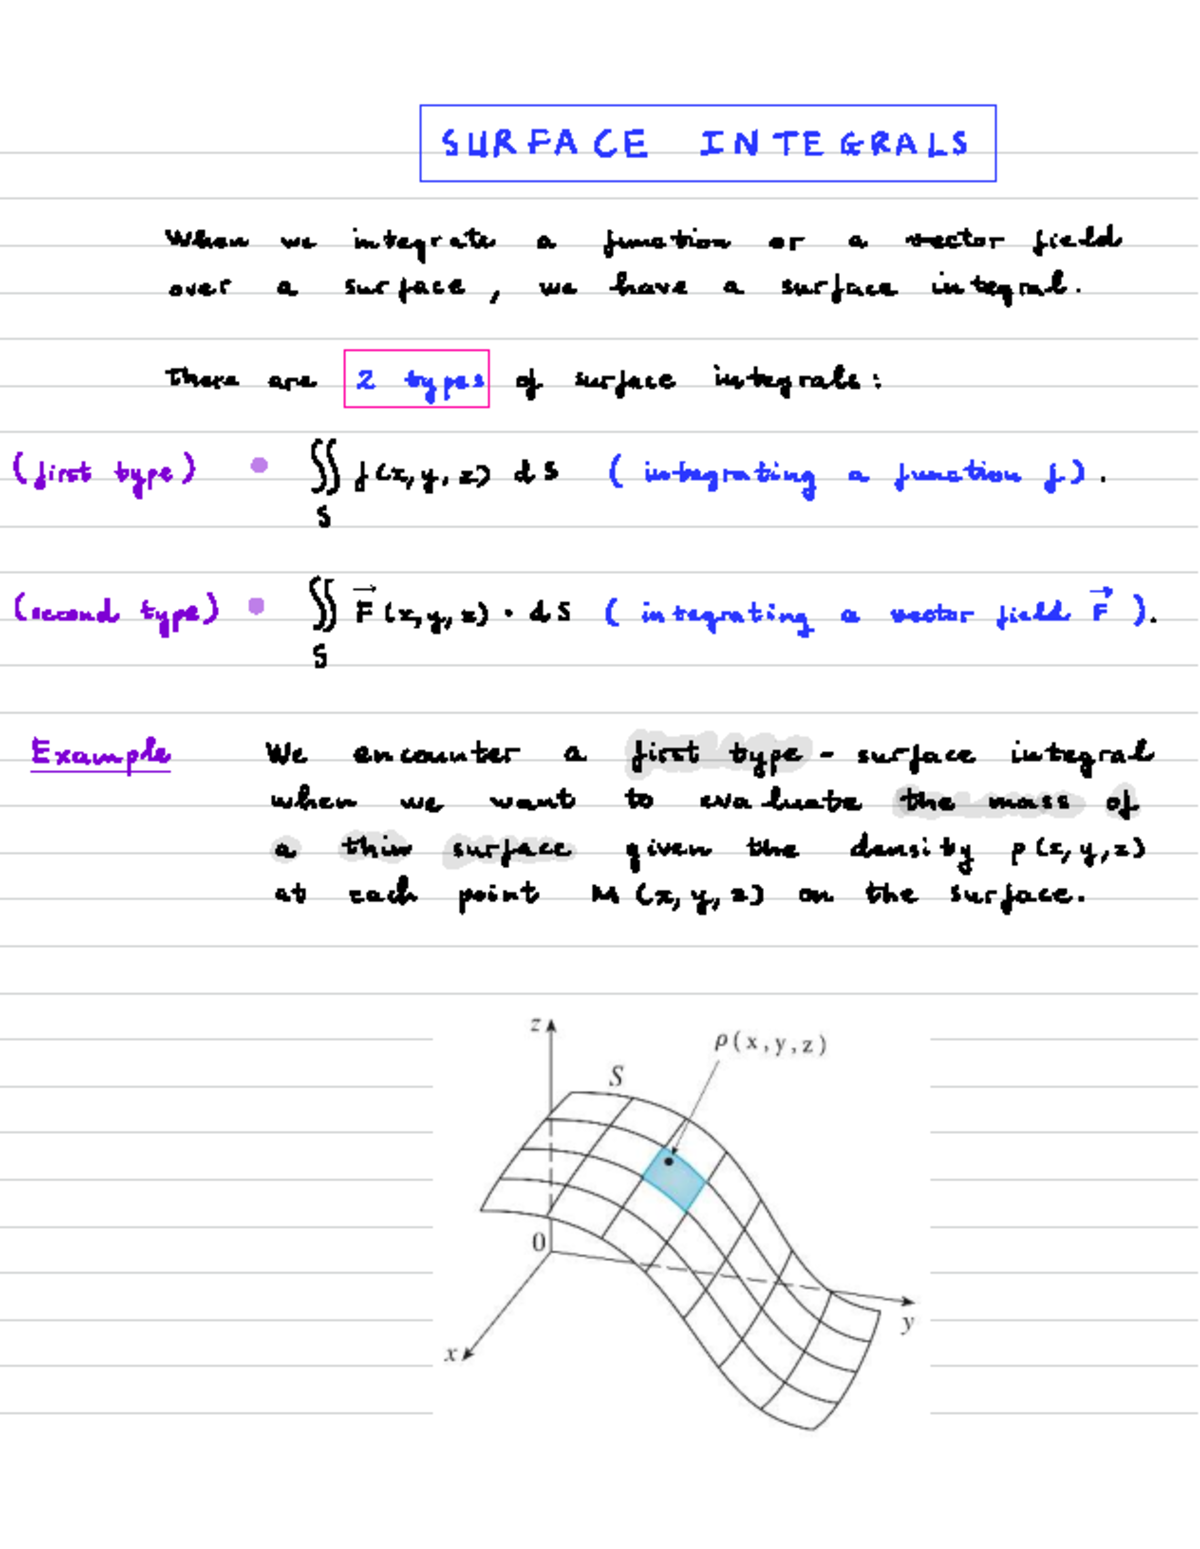 SURFACE INTEGRALS
When we integrate a function or a vector field
over a surface, we have a surface integral.
There are 2 types of surface integrals:
(first type) • ∬ f(x,y,z) dS (integrating a function f).
S
(second type) • ∬ F⃗(x,y,z) · dS (integrating a vector field F⃗).
S
Example We encounter a first type - surface integral
when we want to evaluate the mass of
a thin surface given the density ρ(x,y,z)
at each point M(x,y,z) on the surface.
z
ρ(x,y,z)
S
0
y
x